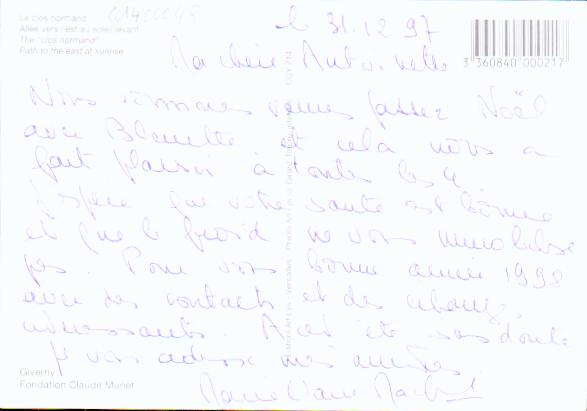 Le clos normand
Allée vers l'est au soleil levant
The "clos normand"
Path to the east at sunrise
3 360840 000217
le 31.12.97
Ma chère Antoinette
Nous sommes venus passer Noël
avec Blanchette et cela nous a
fait plaisir à toutes les 4
J'espère que votre santé est bonne
et que le froid ne vous immobilise
pas. Pour vous bonne année 1998
avec des contacts et des échanges
intéressants. A cet été sans doute
Je vous adresse mes amitiés
Marie Claire
Giverny
Fondation Claude Monet